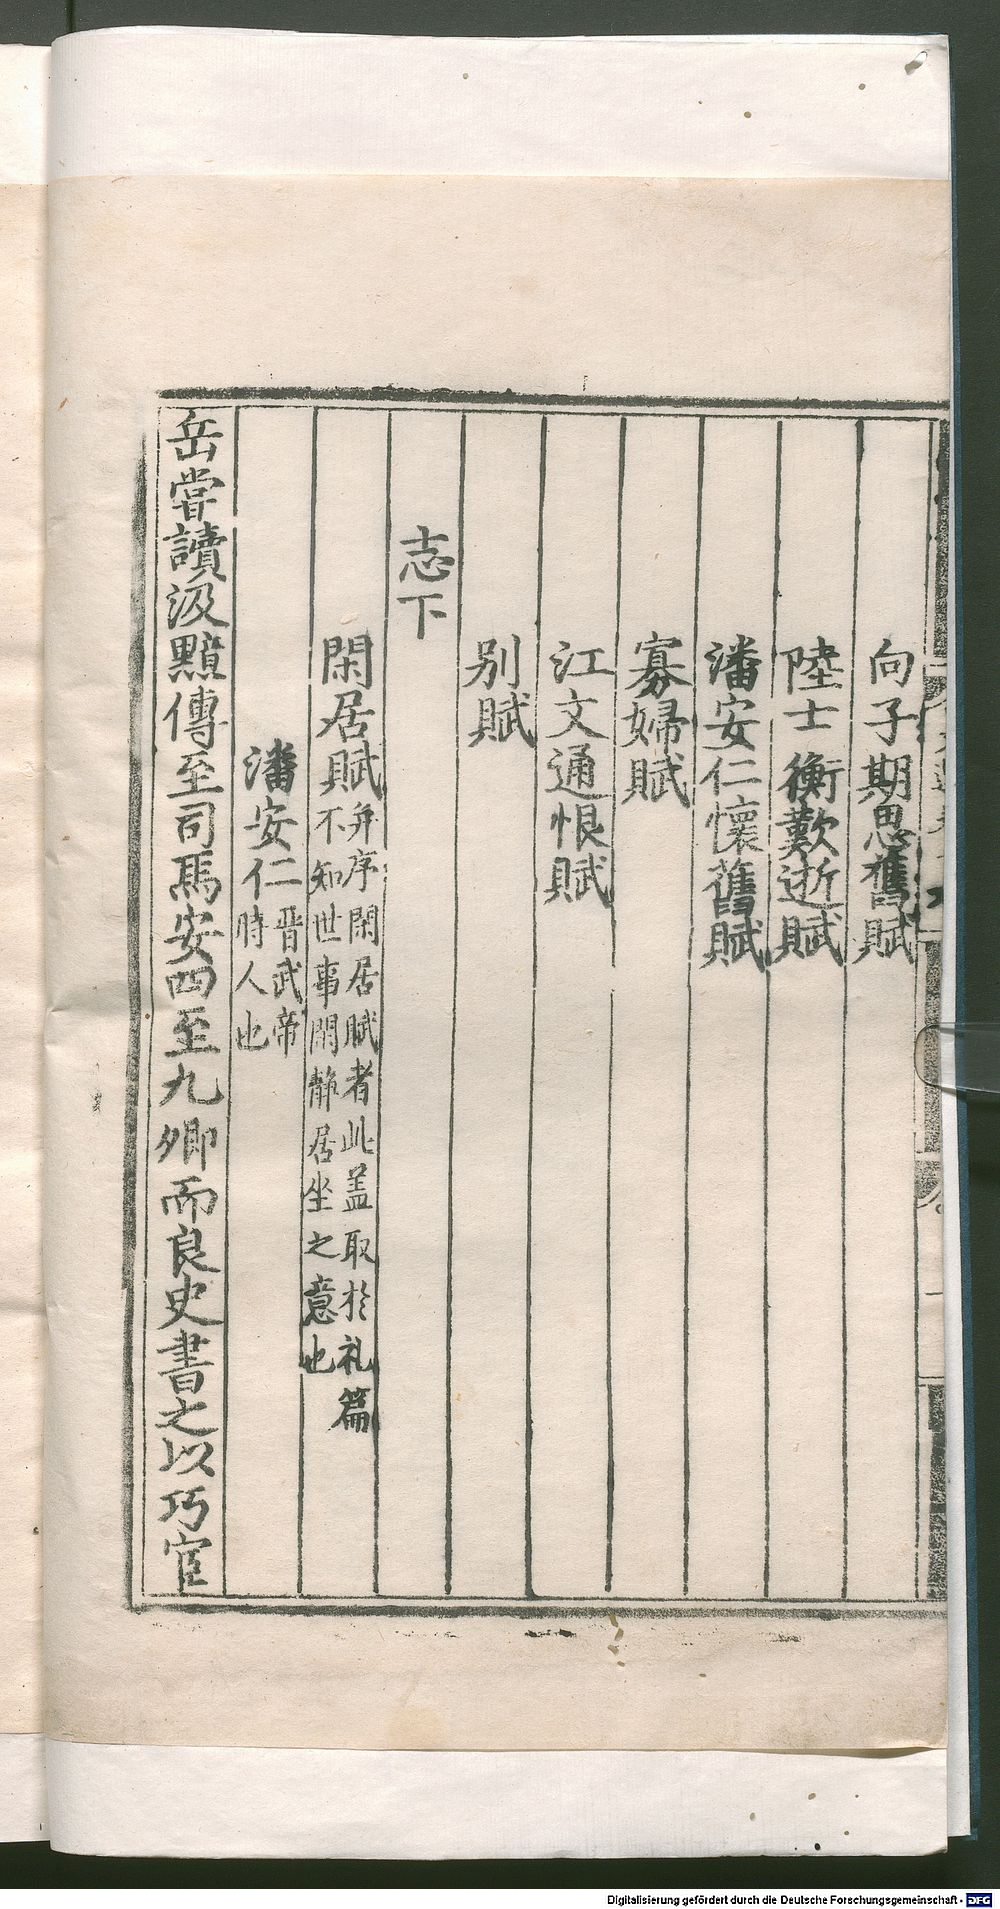 向子期思舊賦
陸士衡歎逝賦
潘安仁懷舊賦
寡婦賦
江文通恨賦
别賦
志下
閑居賦并序閑居賦者此盖取於礼篇
不知世事閑静居坐之意也
潘安仁晋武帝
時人也
岳嘗讀汲黯傳至司馬安四至九卿而良史書之以巧宦
Digitalisierung gefördert durch die Deutsche Forschungsgemeinschaft - DFG